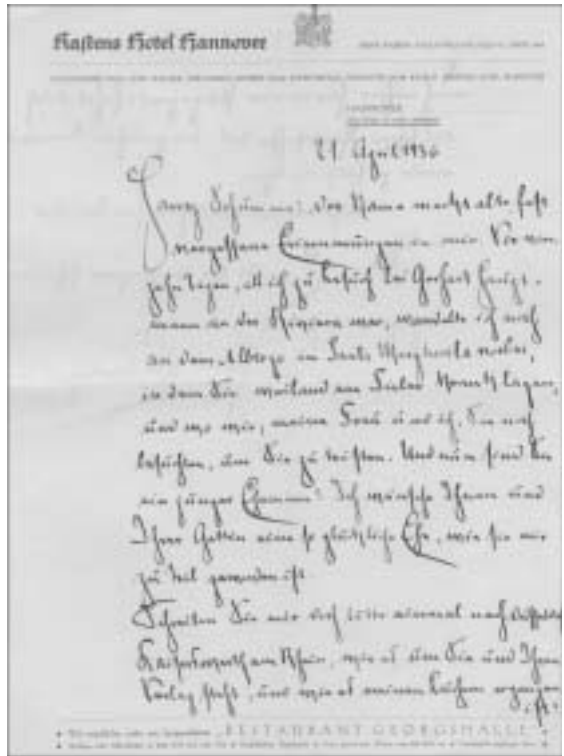 Kastens Hotel Hannover
21. April 1936
Fanny Schumm? Der Name weckt alte fast
vergessene Erinnerungen in mir. Vor
zehn Tagen, als ich zu Besuch bei Gerhart Haupt-
mann an der Riviera war, wandelte ich noch
an dem Albergo in Santa Margherita vorbei,
in dem Sie weiland am Fieber krank lagen,
und wo wir, meine Frau und ich, Sie noch
besuchten, um Sie zu trösten. Und nun sind Sie
ein junger Ehemann? Ich wünsche Ihnen und
Ihrer Gattin eine so glückliche Ehe, wie sie mir
zu teil geworden ist.
Schreiben Sie mir doch bitte einmal nach Düsseldorf
Kaiserswerth am Rhein, wie es um Sie und Ihren
Verlag steht, und wie es meinen Büchern ergangen
ist.
RESTAURANT GEORGSHALLE